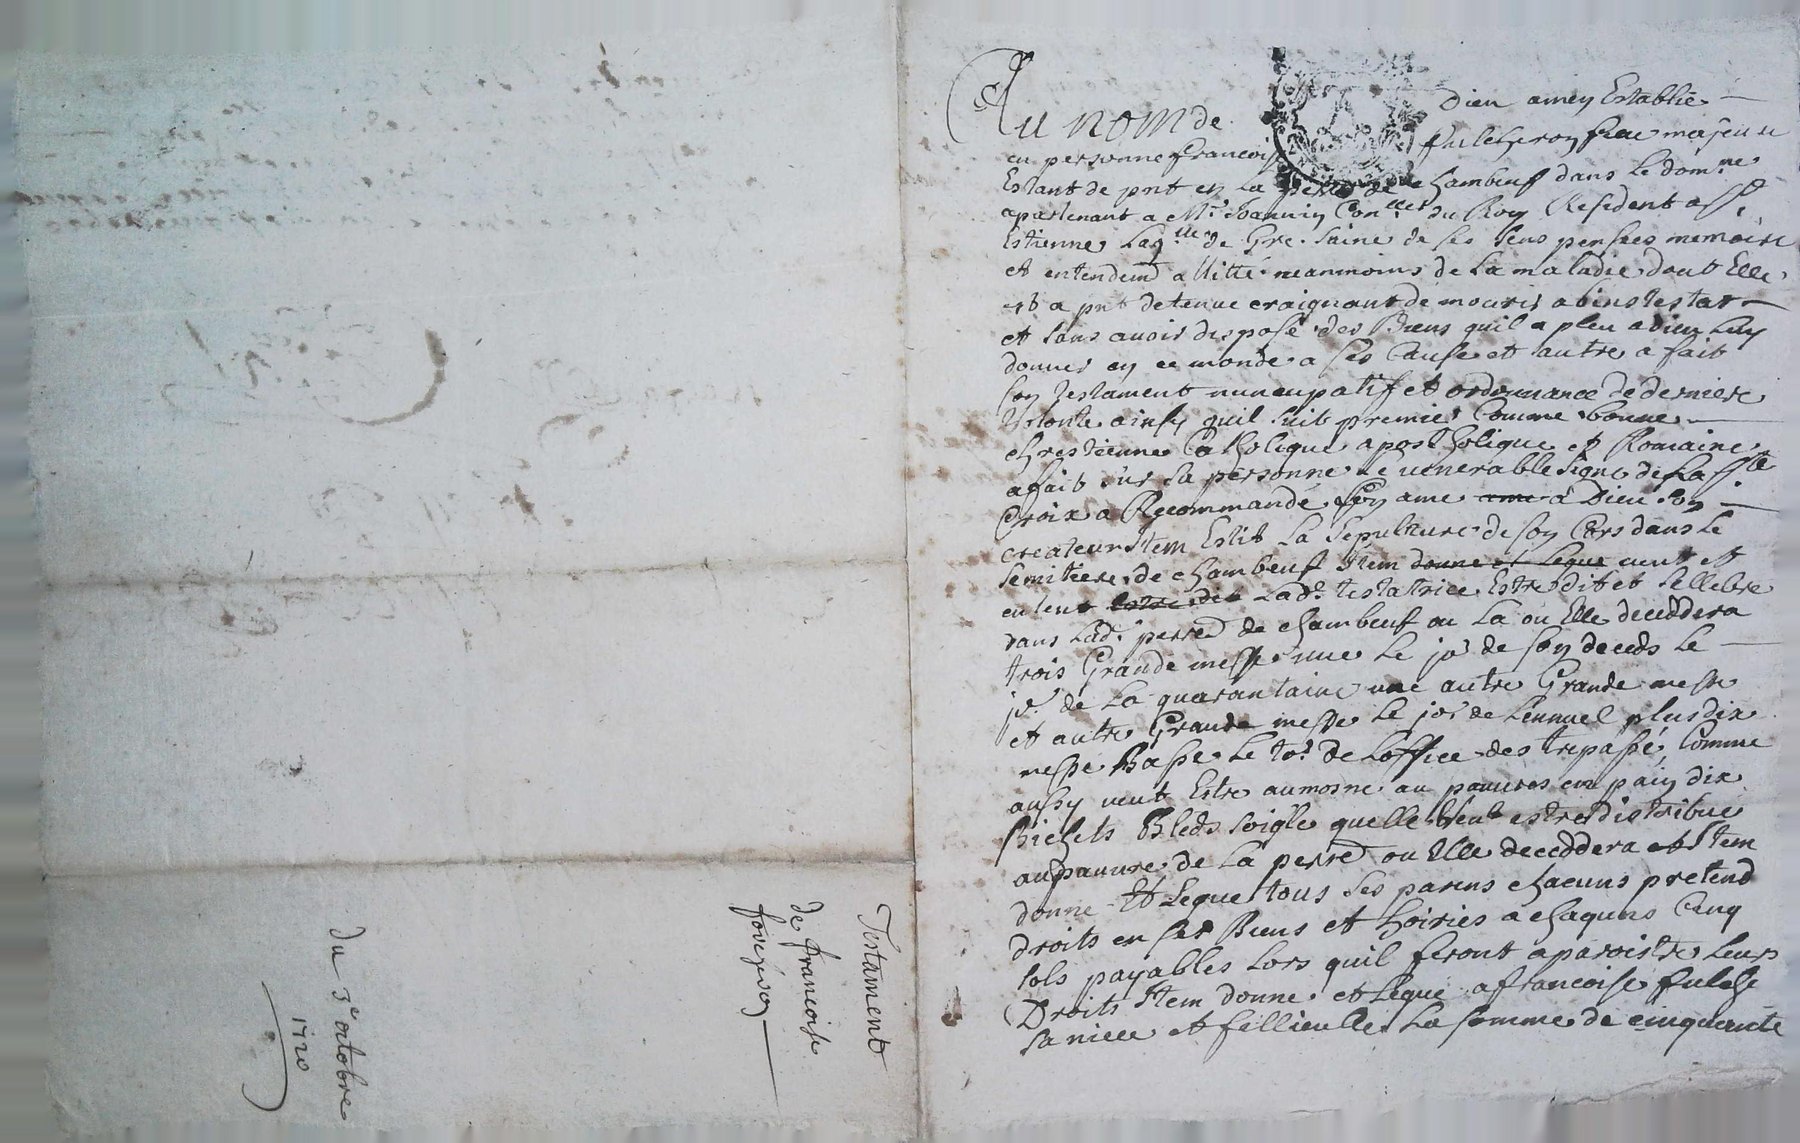 Testament
de francoise
du 3e octobre
1720
Au nom de Dieu amen Establie
en personne francoise fille majeure
Estant de pnt en la de chambeuf dans le dom.ne
apartenant a Mr. Joannin Con.ller du Roy Resident a St.
Estienne Laq.lle de Gré saine de ses sens pensees memoire
et entendemt allitté neanmoins de La maladie dont Elle
est a pnt detenue craignant de mourir abintestat
et sans avoir disposé des Biens quil a pleu a dieu Luy
donner en ce monde a ses Cause et autre a fait
son Testament nuncupatif et ordonnance de derniere
Volonte ainsy quil suit premier Comme bonne
chrestienne Catholique apostholique et Romaine
a fait sur sa personne Le venerable signe de La Ste
Croix a Recommandé son ame ame a Dieu son
createur Item Eslit La Sepulture de son Cors dans Le
semitiere de chambeuf Item donne et Legue veut et
entent estre dit Lad.e testatrice Estre dit et sellebre
dans Lad. de chambeuf ou La ou Elle deceddera
trois Grande messe une Le jor de son deceds Le
jr. de La quarantaine une autre Grande messe
et autre Grande messe Le jor de Lennuel plus dix
messe Basse Le Loffice des trepassé, Comme
aussy veut Estre aumosne au pauvres en pain dix
Bichets Bleds soigle quelle veut estre distribue
au pauvre de La ou Elle deceddera et Item
donne Et Legue tous ses parens chacuns pretend
droits en ses Biens et hoiries a chaquns Cinq
sols payables Lors quil feront aparoistre Leurs
Droits Item donne et Legue a francoise
sa niece et fillieulle La somme de cinquante